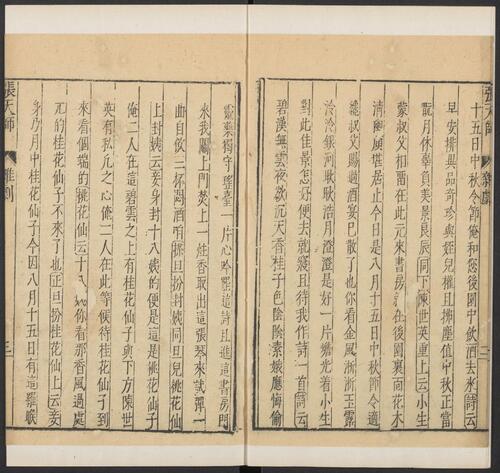 張天師 雜劇 二
十五日中秋令節俺和您後園中飲酒去來詩云
早安排異品奇珍與姪兒權且拂塵值中秋正當
翫月休辜負美景良辰同下陳世英重上云小生
蒙叔父相留在此元來書房設在後園裏面花木
清幽頗堪居止今日是八月十五日中秋節令適
纔叔父賜過酒宴已散了也你看金風淅淅玉露
泠泠銀河耿耿浩月澄澄是好一片蟾光着小生
對此佳景怎好便去就寢且待我作詩一首詩云
碧漢無雲夜欲沉天香桂子色陰陰素娥應悔偷
靈藥獨守瑤臺一片心吟罷這詩且進這書房門
來我關上門焚上一炷香取出這張琴來試彈一
曲自飲三杯悶酒咱搽旦扮封姨同旦兒桃花仙
上封姨云妾身封十八姨的便是這是桃花仙子
俺二人在這碧雲之上有桂花仙子與下方陳世
英有私凡之心俺二人在此等候待桂花仙子到
來看個端的桃花云十八姨你看那香風過處
兀的桂花仙子不來了也正旦扮桂花仙子上云妾
身乃月中桂花仙子今因八月十五日有這羅睺
張天師 雜劇 三